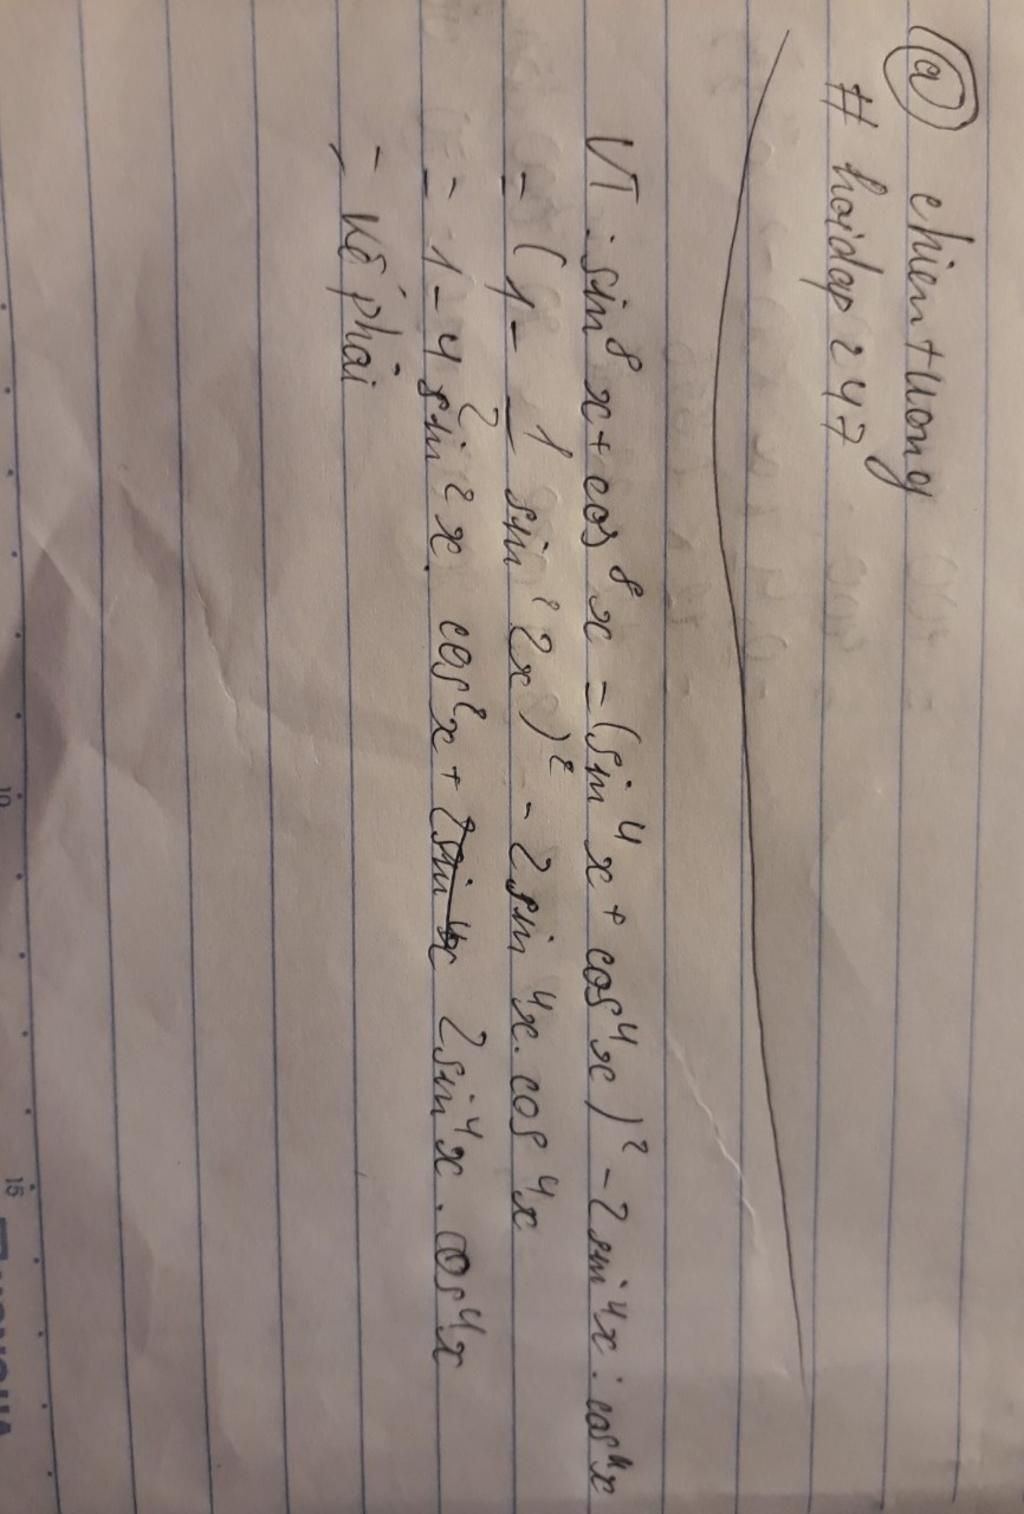 @ chientuong
# hoidap247
VT: sin⁸x + cos⁸x = (sin⁴x + cos⁴x)² - 2sin⁴x . cos⁴x
= (1 - 1/2 sin²2x)² - 2sin⁴x . cos⁴x
= 1 - 4sin²x . cos²x + 2sin⁴x . cos⁴x
= Vế phải
10
15